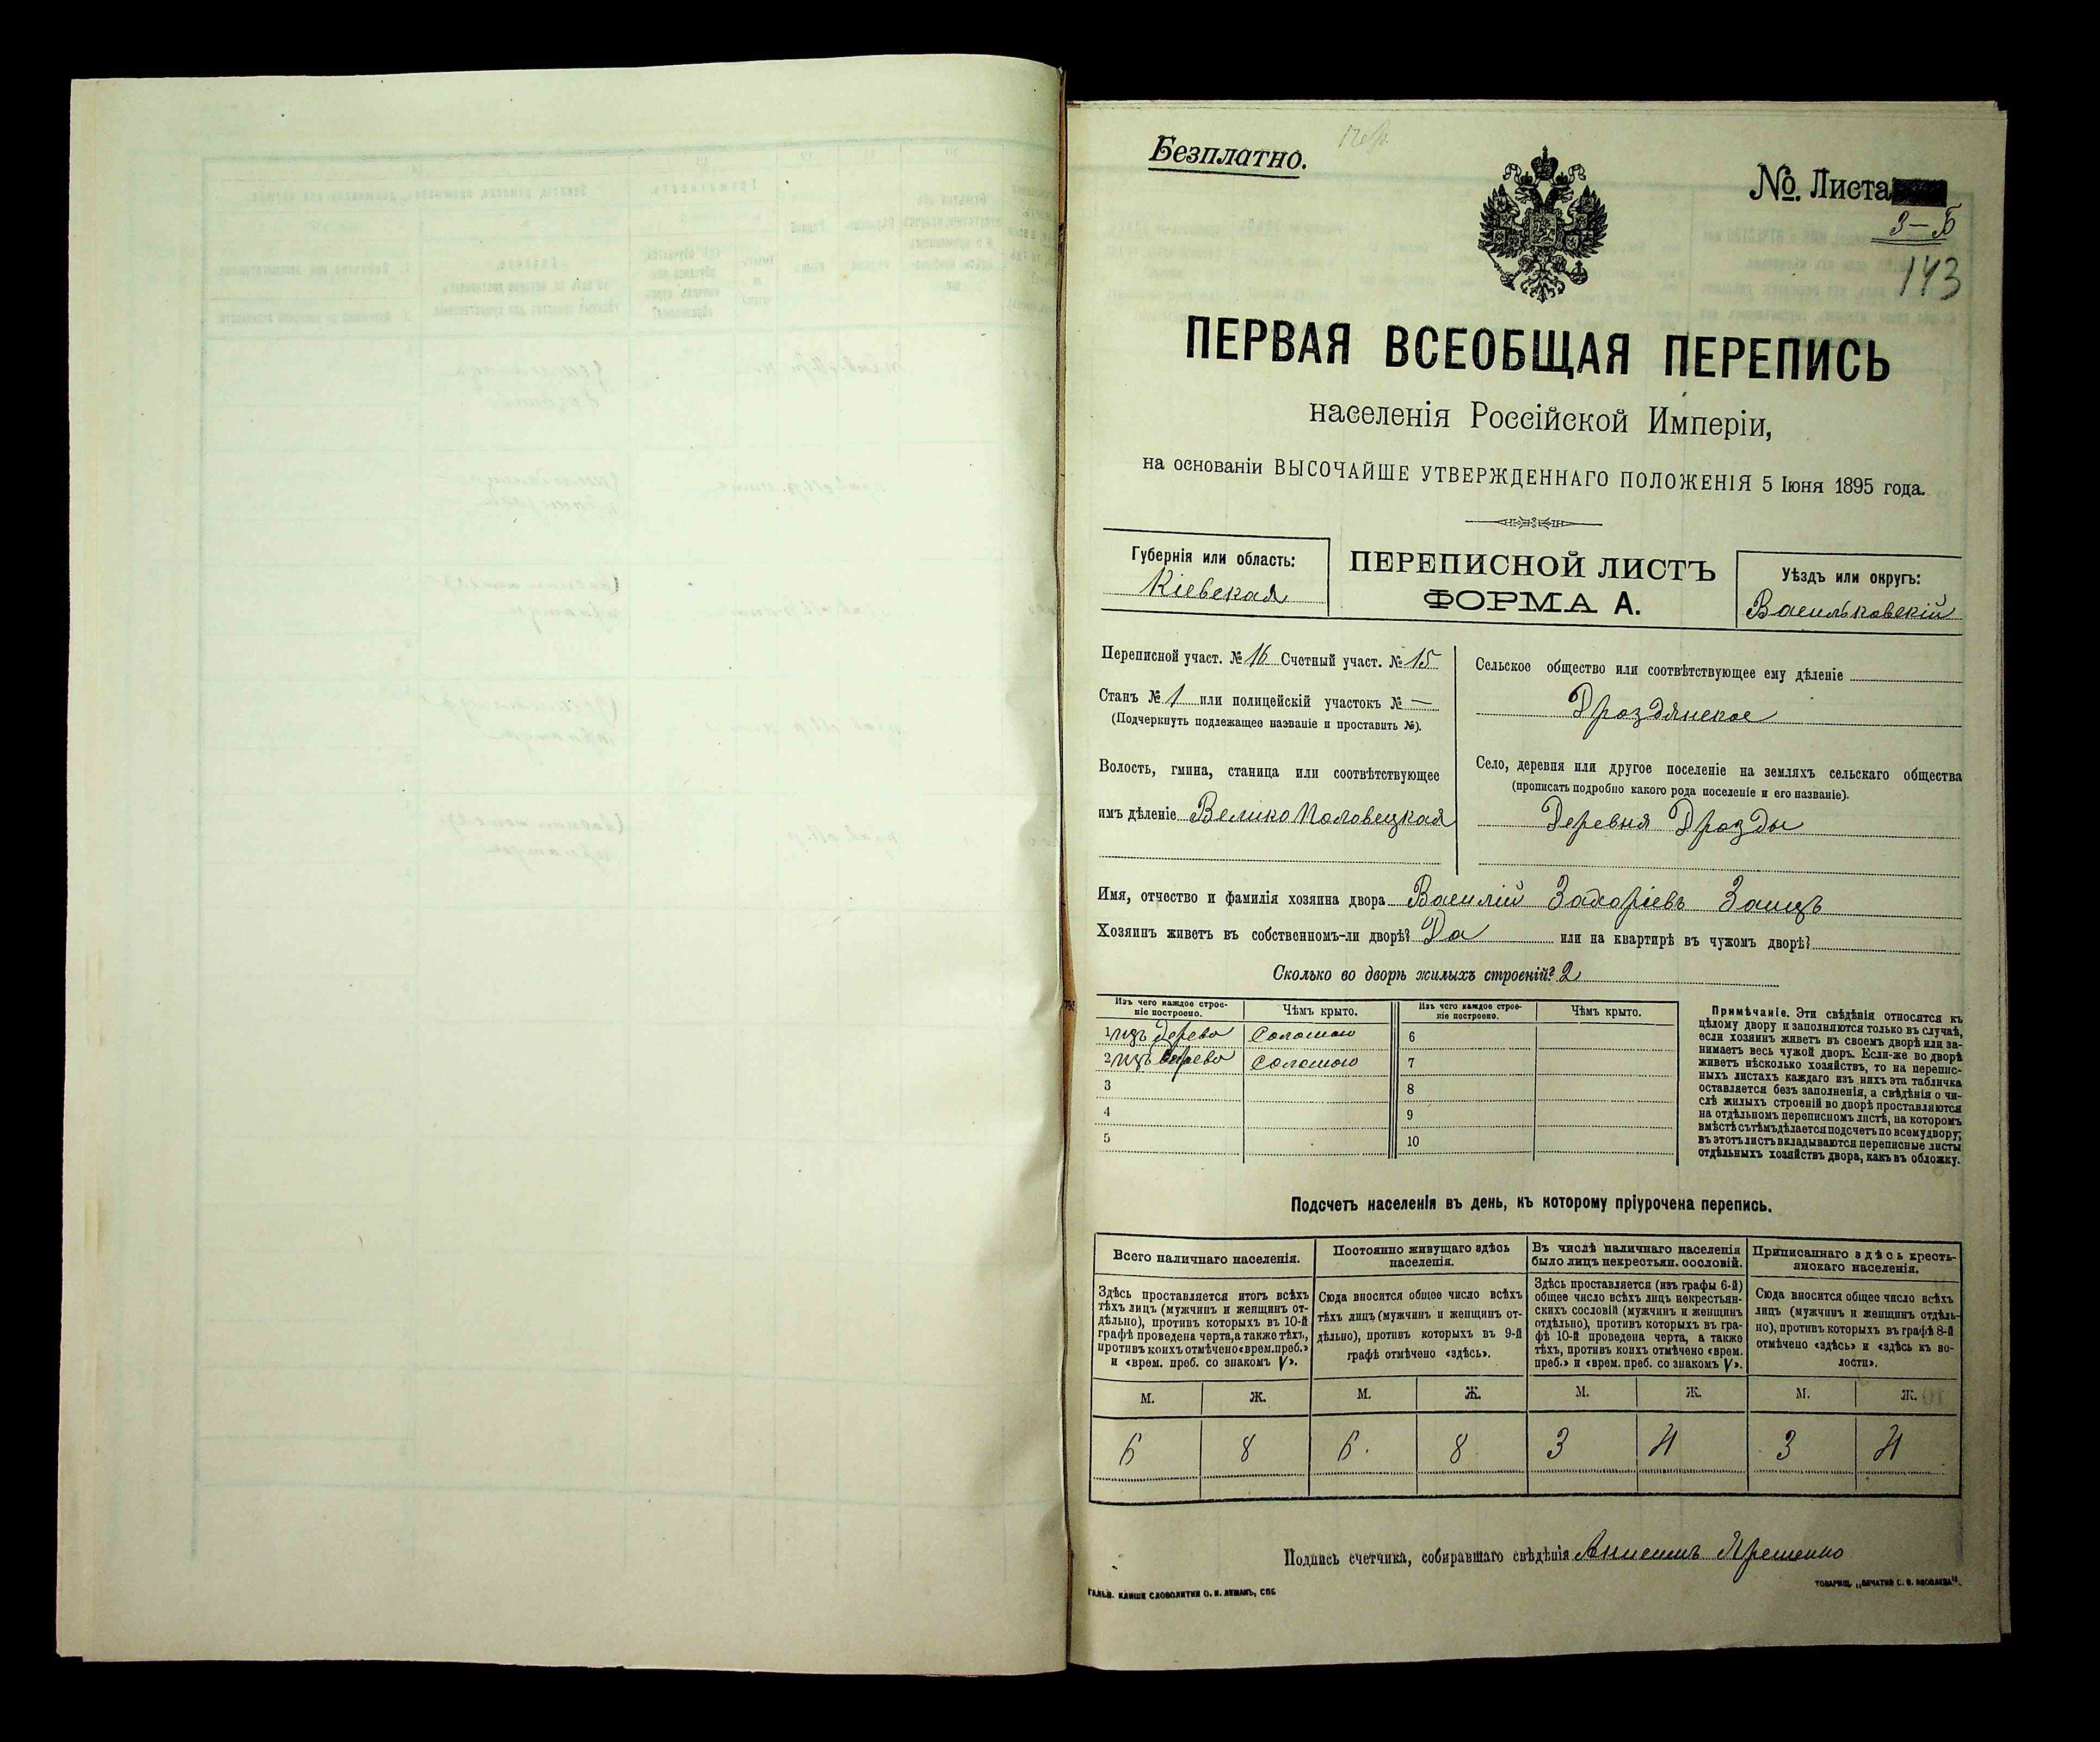 Безплатно.
№. Листа
3–Б
143
ПЕРВАЯ ВСЕОБЩАЯ ПЕРЕПИСЬ
населенія Россійской Имперіи,
на основаніи ВЫСОЧАЙШЕ УТВЕРЖДЕННАГО ПОЛОЖЕНІЯ 5 Іюня 1895 года.
Губернія или область:
Кіевская
ПЕРЕПИСНОЙ ЛИСТЪ
ФОРМА А.
Уѣздъ или округъ:
Васильковскій
Переписной участ. № 16 Счетный участ. № 15
Станъ № 1 или полицейскій участокъ № —
(Подчеркнуть подлежащее названіе и проставить №).
Волость, гмина, станица или соотвѣтствующее
имъ дѣленіе Велико Половецкая
Сельское общество или соотвѣтствующее ему дѣленіе
Дроздянское
Село, деревня или другое поселеніе на земляхъ сельскаго общества
(прописать подробно какого рода поселеніе и его названіе).
Деревня Дрозды
Имя, отчество и фамилія хозяина двора Василій Захаріевъ Заицъ
Хозяинъ живетъ въ собственномъ-ли дворѣ? Да или на квартирѣ въ чужомъ дворѣ?
Сколько во дворѣ жилыхъ строеній? 2
Изъ чего каждое строе-
ніе построено.
Чѣмъ крыто.
Изъ чего каждое строе-
ніе построено.
Чѣмъ крыто.
1 изъ дерева Соломою 6
2 изъ дерева Соломою 7
3 8
4 9
5 10
Примѣчаніе. Эти свѣдѣнія относятся къ
цѣлому двору и заполняются только въ случаѣ,
если хозяинъ живетъ въ своемъ дворѣ или за-
нимаетъ весь чужой дворъ. Если-же во дворѣ
живетъ нѣсколько хозяйствъ, то на перепис-
ныхъ листахъ каждаго изъ нихъ эта табличка
оставляется безъ заполненія, а свѣдѣнія о чи-
слѣ жилыхъ строеній во дворѣ проставляются
на отдѣльномъ переписномъ листѣ, на которомъ
вмѣстѣ съ тѣмъ дѣлается подсчетъ по всему двору;
въ этотъ листъ вкладываются переписные листы
отдѣльныхъ хозяйствъ двора, какъ въ обложку.
Подсчетъ населенія въ день, къ которому пріурочена перепись.
Всего наличнаго населенія.
Здѣсь проставляется итогъ всѣхъ
тѣхъ лицъ (мужчинъ и женщинъ от-
дѣльно), противъ которыхъ въ 10-й
графѣ проведена черта, а также тѣхъ,
противъ коихъ отмѣчено «врем. преб.»
и «врем. преб. со знакомъ V».
Постоянно живущаго здѣсь
населенія.
Сюда вносится общее число всѣхъ
тѣхъ лицъ (мужчинъ и женщинъ от-
дѣльно), противъ которыхъ въ 9-й
графѣ отмѣчено «здѣсь».
Въ числѣ наличнаго населенія
было лицъ некрестьян. сословій.
Здѣсь проставляется (изъ графы 6-й)
общее число всѣхъ лицъ некрестьян-
скихъ сословій (мужчинъ и женщинъ
отдѣльно), противъ которыхъ въ гра-
фѣ 10-й проведена черта, а также
тѣхъ, противъ коихъ отмѣчено «врем.
преб.» и «врем. преб. со знакомъ V».
Приписаннаго здѣсь кресть-
янскаго населенія.
Сюда вносится общее число всѣхъ
лицъ (мужчинъ и женщинъ отдѣль-
но), противъ которыхъ въ графѣ 8-й
отмѣчено «здѣсь» и «здѣсь къ во-
лости».
М. Ж. М. Ж. М. Ж. М. Ж.
6 8 6. 8 3 4 3 4
Подпись счетчика, собиравшаго свѣдѣнія Анисимъ Яременко
ГАЛЬВ. КЛИШЕ СЛОВОЛИТНИ О. И. ЛЕМАНЪ, СПБ
ТОВАРИЩ. „ПЕЧАТНЯ С. П. ЯКОВЛЕВА“.